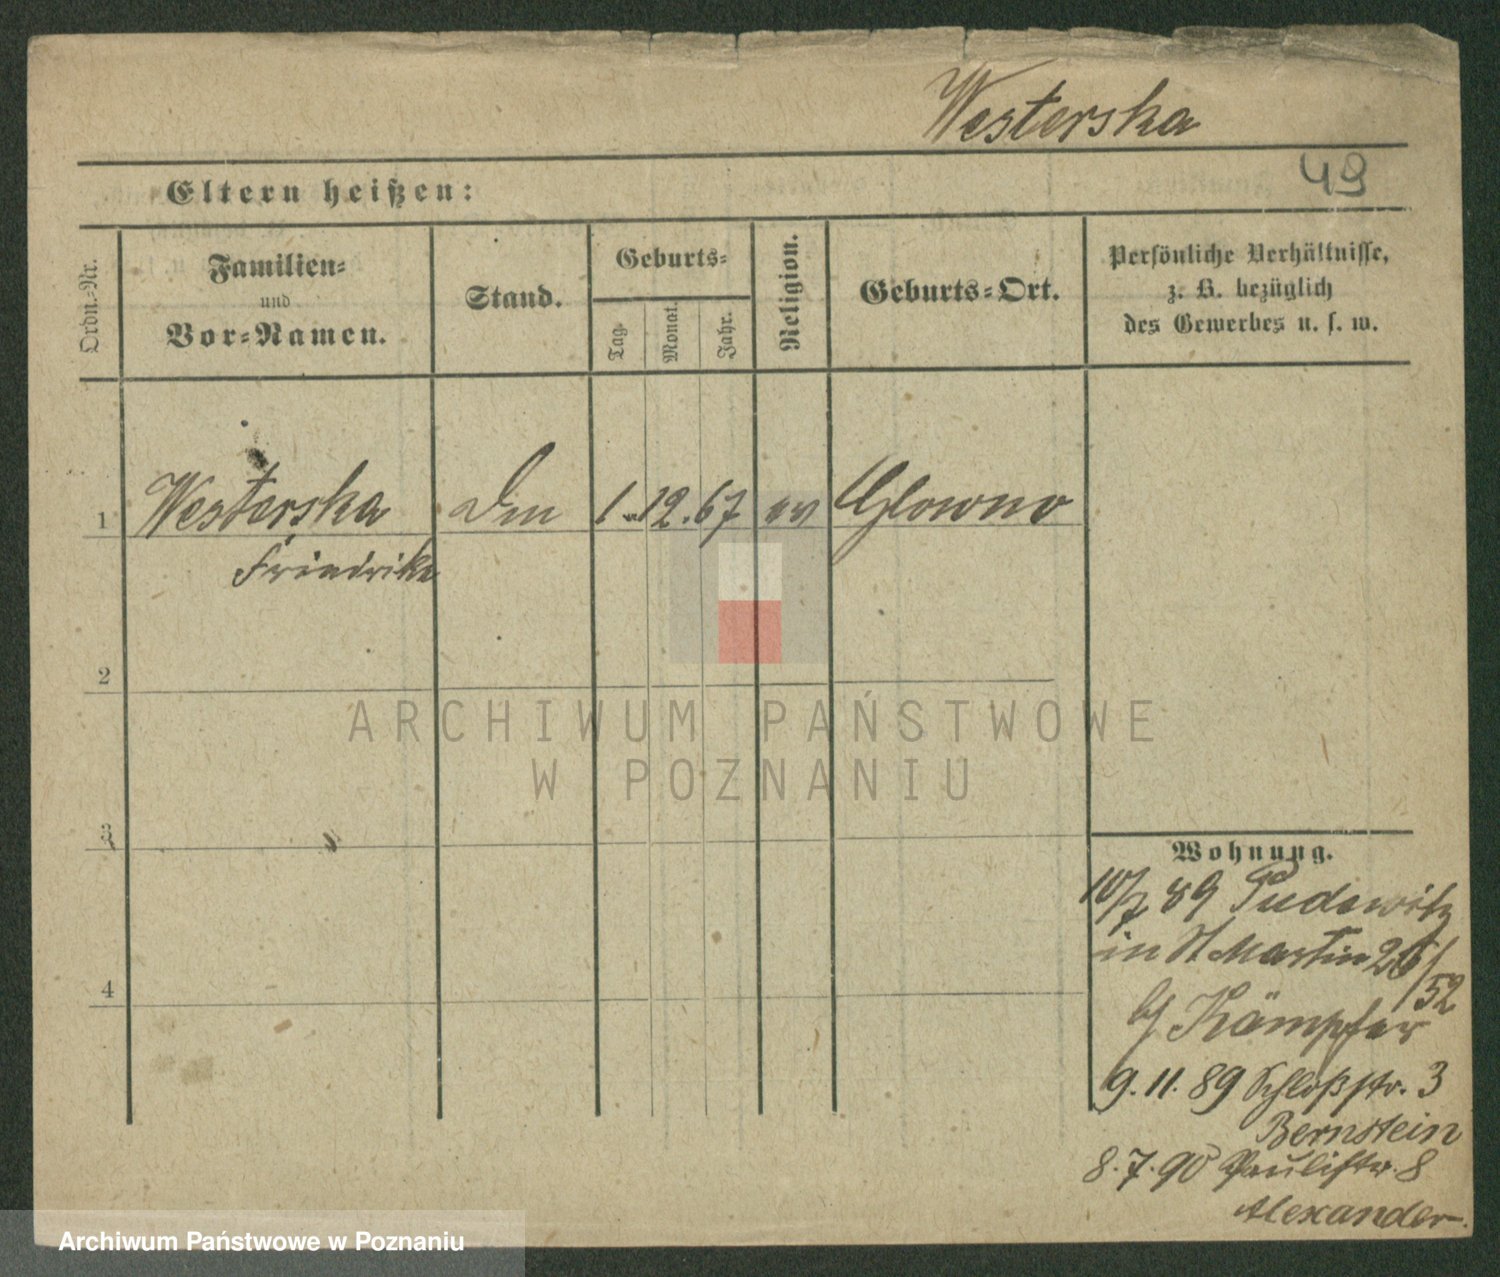 Westerska
49
Eltern heißen:
Ordn.-Nr.
Familien-
und
Vor-Namen.
Stand.
Geburts-
Tag.
Monat.
Jahr.
Religion.
Geburts-Ort.
Persönliche Verhältnisse,
z. B. bezüglich
des Gewerbes u. s. w.
1 Westerska Dm 1. 12. 67 ev Glowno
Friedrike
2
3
4
Wohnung.
10/7 89 Pudewitz
in St Martin 26/
52
bj Kämpfer
9. 11. 89 Schloßstr. 3
Bernstein
8. 7. 90 Paulistr. 8
Alexander
ARCHIWUM PAŃSTWOWE
W POZNANIU
Archiwum Państwowe w Poznaniu